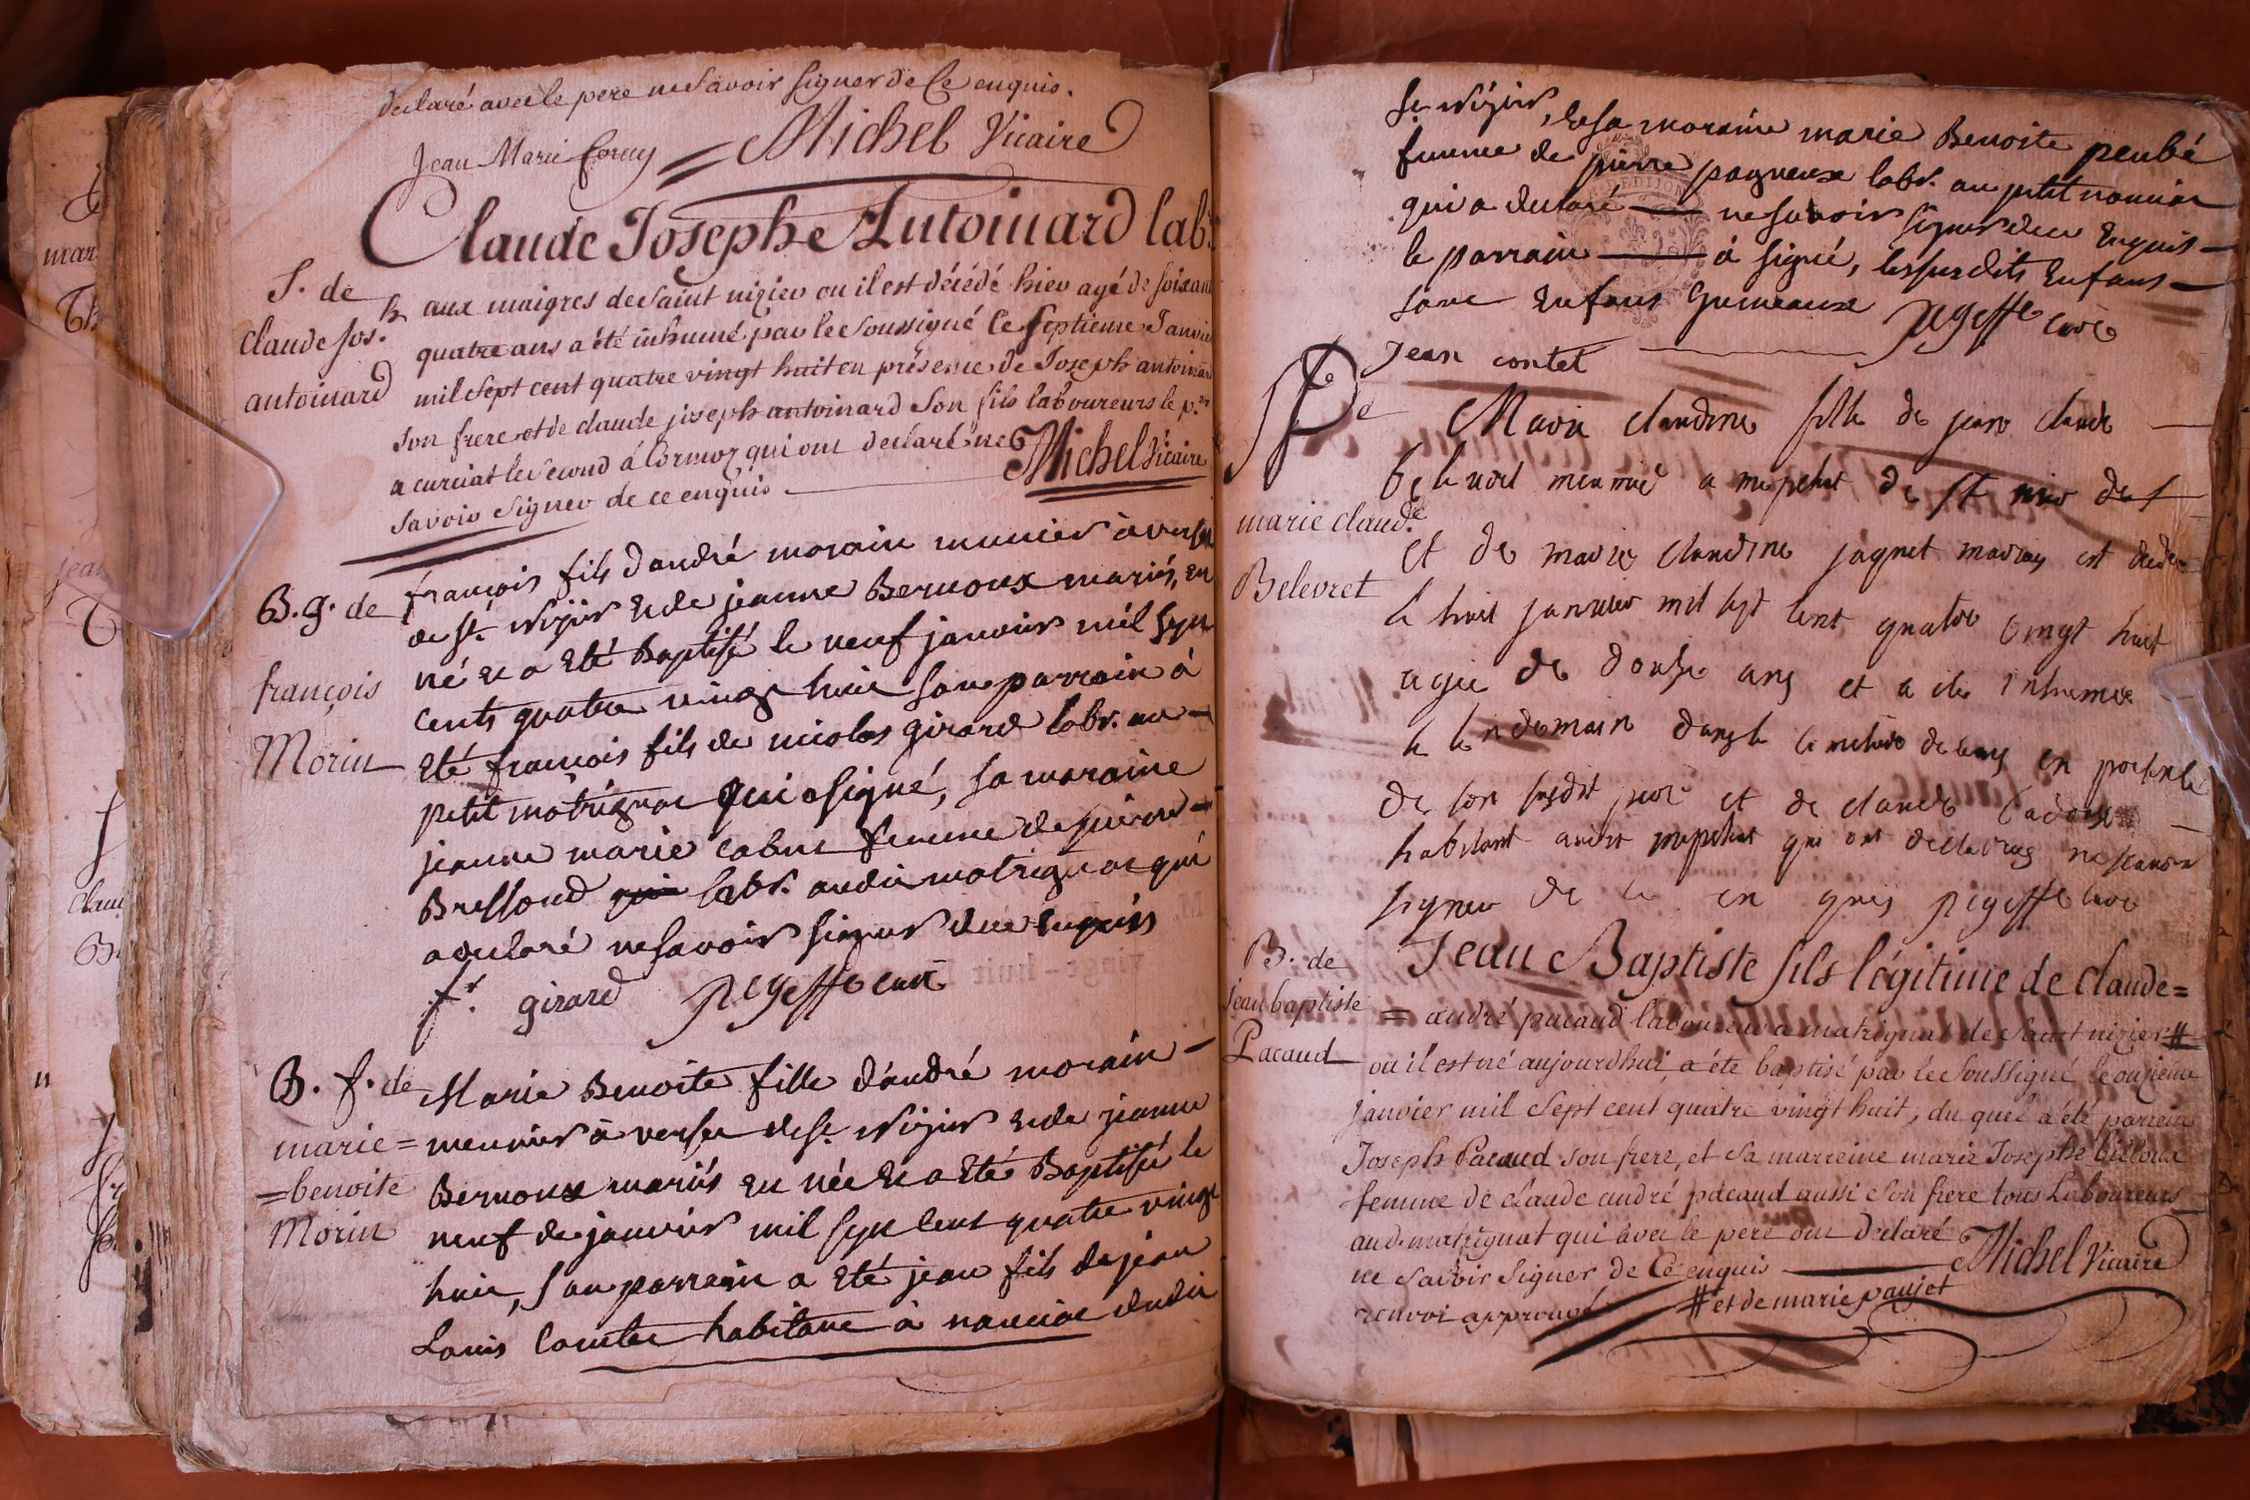 declaré avec le pere ne savoir signer de Ce enquis.
Jean Marie Cornuy Michel Vicaire
Claude Joseph Antoinard lab.
S. de
claude jos.h
antoinard
aux maigres de saint nizier ou il est décédé hier agé de soixante
quatre ans a été inhumé par le soussigné le septieme Janvier
mil sept cent quatre vingt huit en présence de Joseph antoinard
son frere et de claude joseph antoinard son fils laboureurs le p.er
a curciat le second à cormoz qui ont declaré ne
savoir signer de ce enquis. Michel Vicaire
B. g. de
françois
Morin
françois fils d'andré morain munier à verse
de st. Nizier et de jeanne Bernoux mariés, en
né et a eté Baptisé le neuf janvier mil sept
cents quatre vingt huit son parrain à
eté francois fils de nicolas girard labr. au
petit motrignat qui a signé, sa maraine
jeanne marie cabut femme de pierre
Bressoud qui labr. audit motrignat qui
a declaré ne savoir signer de ce enquis
fr. girard curé
B. f. de
marie =
= benoite
Morin
Marie Benoite fille d'andré morain
meunier à verse de st. Nizier et de jeanne
Bernoux mariés en née et a eté Baptisée le
neuf de janvier mil sept cent quatre vingt
huit, son parrain a eté jean fils de jean
Louis Comtet habitant à nancuat dudit
st. Nizier, et sa moraine marie Benoite
femme de pierre pagneux labr. au petit
qui a declaré ne savoir signer de ce enquis
le parrain à signé, les susdits enfans
sont enfans gumeaux curé
jean contet
marie claud.e
Belevret
Marie claudine fille de jean claude
de st
et de marie claudine jaquet mariés est decedee
le huit janvier mil sept cent quatre vingt huit
agee de douse ans et a ete inhumee
le lendemain dans le cimetiere de ceans en presence
de son susdit pere et de claude
habitant audit qui ont declarés ne scavoir
signer de ce en quis curé
B. de
jean baptiste
Pacaud
Jean Baptiste fils légitime de claude =
= andré pacaud laboureur a matrignat de saint nizier #
ou il est né aujourdhui, a été baptisé par le soussigné le onzieme
janvier mil sept cent quatre vingt huit, du quel a été parrein
Joseph Pacaud son frere, et sa marreine marie Josephe
femme de claude andré pacaud aussi son frere tous Laboureurs
aud. matrignat qui avec le pere ont declaré
ne savoir signer de Ce enquis Michel Vicaire
renvoi approuvé # et de marie paujet